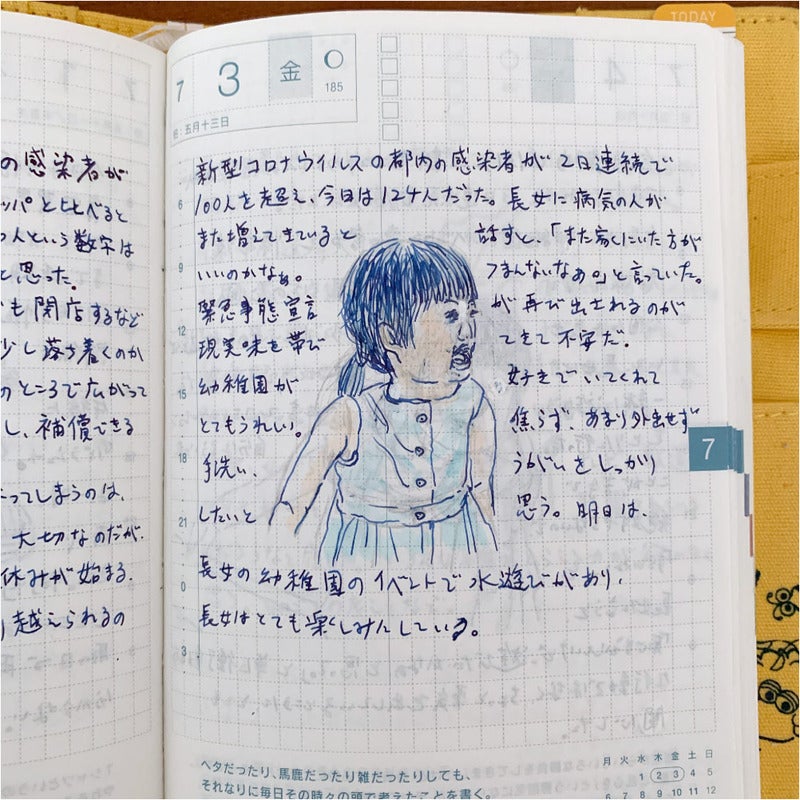 の感染者が
ッパと比べると
人という数字は
と思った。
も閉店するなど
少し落ち着くのか
のところで広がって
し、補償できる
ってしまうのは、
大切なのだが、
休みが始まる。
り越えられるの
TODAY
7 3 金 185
五月十三日
新型コロナウイルスの都内の感染者が2日連続で
6 100人を超え、今日は124人だった。長女に病気の人が
また増えてきていると 話すと、「また家にいた方が
9 いいのかなぁ。 つまんないなぁ。」と言っていた。
緊急事態宣言 が再び出されるのが
12 現実味を帯び てきて不安だ。
15 幼稚園が 好きでいてくれて
とてもうれしい。 焦らず、あまり外出せず
18 手洗い、 うがいをしっかり
21 したいと 思う。明日は、
0 長女の幼稚園のイベントで水遊びがあり、
長女はとても楽しみにしている。
3
7
ヘタだったり、馬鹿だったり雑だったりしても、
それなりに毎日その時々の頭で考えたことを書く。
月 火 水 木 金 土 日
1 2 3 4 5
6 7 8 9 10 11 12